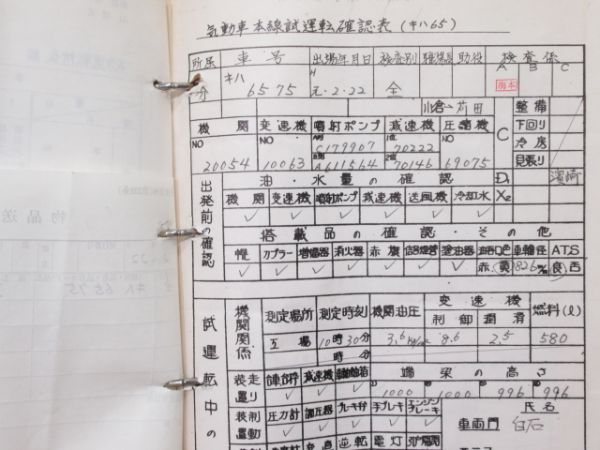 気動車本線試運転確認表 (キハ65)
所属 車号 出場年月日 検査別 職場長 助役 検査係
A B C
キハ 65 75 H 元.2.22 全
小倉〜苅田 整備
機関 変速機 噴射ポンプ 減速機 圧縮機 C 下回り
NO NO C179907 70222 冷房
20054 10063 A611564 70146 69075 見張り
出発前の確認 油・水量の確認 D1
機関 変速機 噴射ポンプ 減速機 送風機 冷却水 X2
✓ ✓ ✓ ✓ ✓ ✓
搭載品の確認・その他
幌 カプラー 増幅器 消火器 赤旗 信号煙管 塗油器 車輪径 ATS
✓ ✓ ✓ ✓ ✓ ✓ ✓ 赤(黄) 826 % (良) 否
試運転中の 機関関係 測定場所 測定時刻 機関油圧 変速機 燃料(l)
制御 潤滑
工場 10時30分 3.6 8.6 2.5 580
時 分
装走置り 台車部枠 減速機 端梁の高さ
✓ ✓ ✓ 1000 1000 996 996
装制置動 圧力計 調圧器 ブレーキ枠 手ブレーキ エンジンブレーキ 氏名
✓ ✓ ✓ ✓ ✓ 車両門 白石
逆転 電灯
物品送
キハ65 75